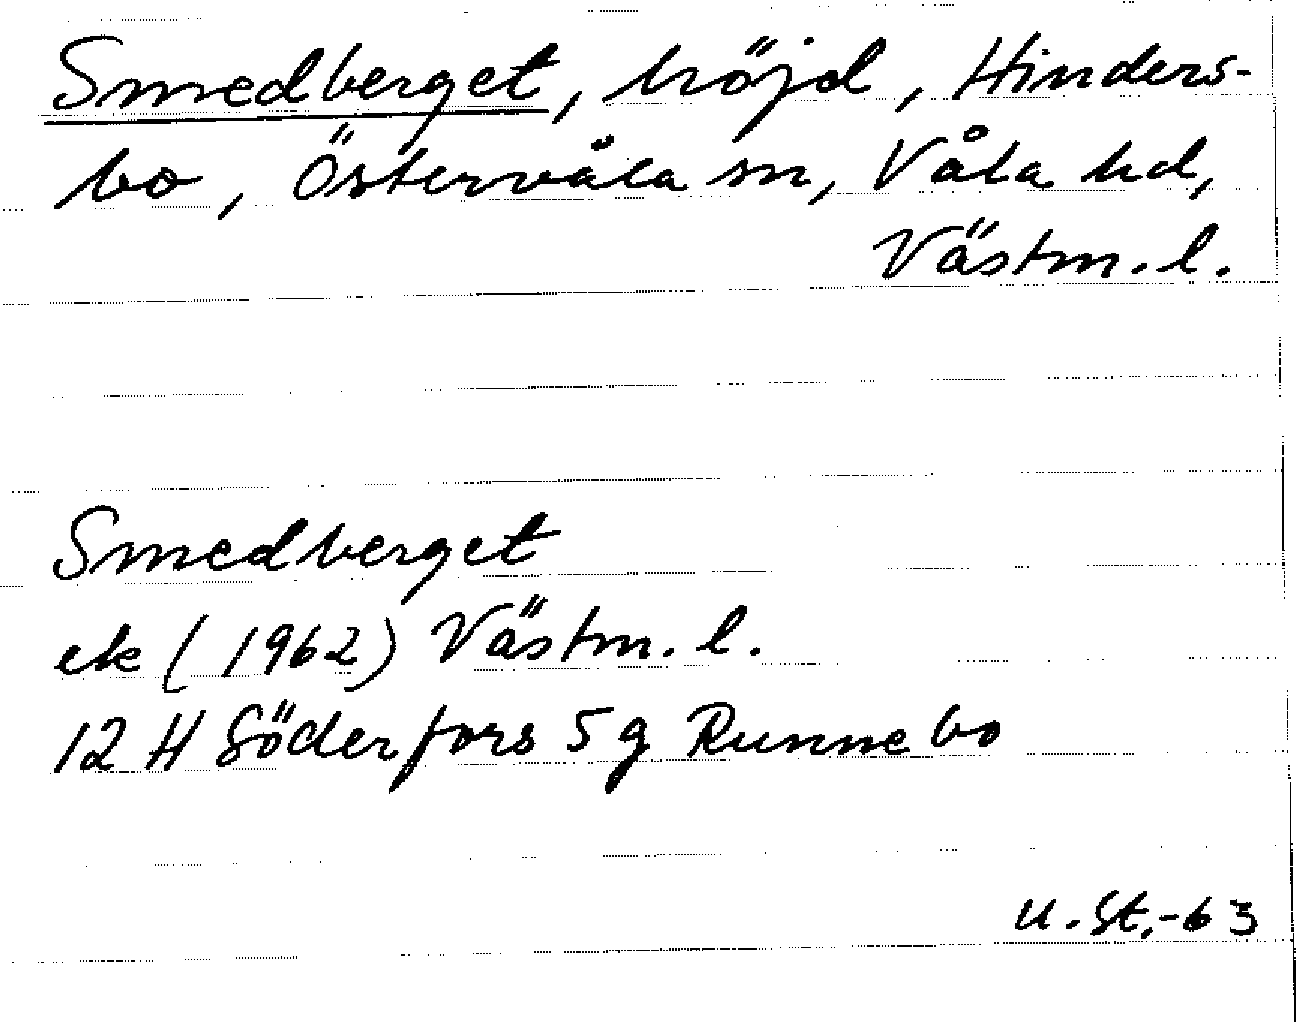 Smedberget, höjd, Hinders-
bo, Östervåla sn, Våla hd,
Västm. l.
Smedberget
ek (1962) Västm. l.
12 H Söderfors 5 g Runnebo
U. St. -63